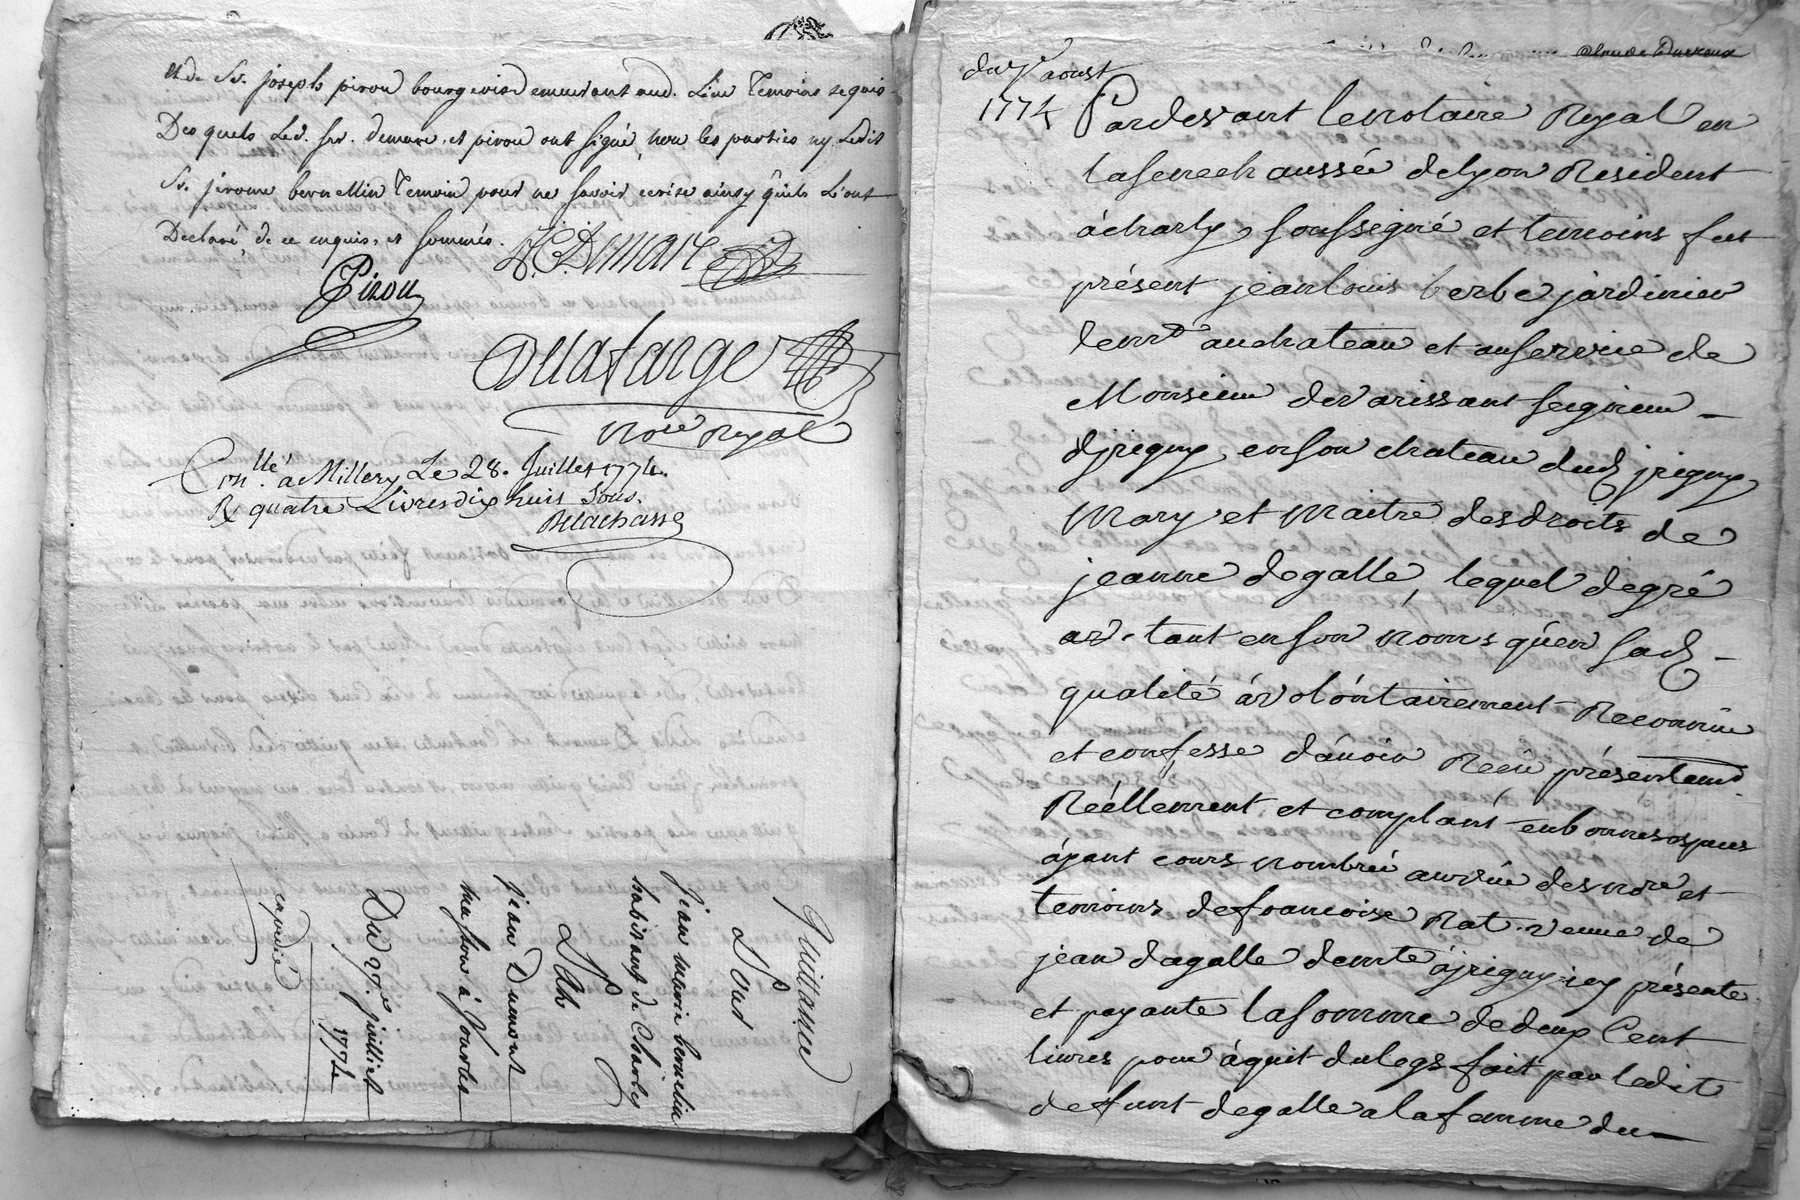 et de Sr. joseph pirou bourgeois demeurant aud. Lieu Temoins requis
Des quels Led. Sr. demare et pirou ont signé, non les parties ny Ledit
Sr. jirome bernellin Temoin pour ne savoir ecrire ainsy qu'ils L'ont
Declaré, de ce enquis, et sommés.
Demare
Pirou
Delafarge
Nore Royal
Conllé. a Millery Le 28. Juillet 1774.
R quatre Livres dix huit Sous.
Delachasse
Quittance
Pour
jean marie bernelin
habitant de Charly
jean Dumont
masson à Vourles
Du 27e juilliet
1774
expedié
Claude
du 7e aoust
1774
Pardevant le notaire Royal en
la senechaussée de lyon Resident
à charly, soussigné et temoins fut
présent jean louis berbe jardinier
demt au chateau et au service de
Monsieur de varissant seigneur
d'jrigny, en son chateau dud jrigny
mary et maitre des droits de
jeanne degalle, lequel de gré
av. tant en son nom s qu'en sad
qualité à volóntairement Reconnu
et confesse d'avoir Recû présentemt
Réellement et complant en bonnes espaces
áyant cours nombreé au vû des nore et
temoins de francoise Rat veuve de
jean dagalle demte à jrigny icy présente
et payante la somme de deux Cent
livres pour àquit du legs fait par ledit
defunt degalle a la femme du